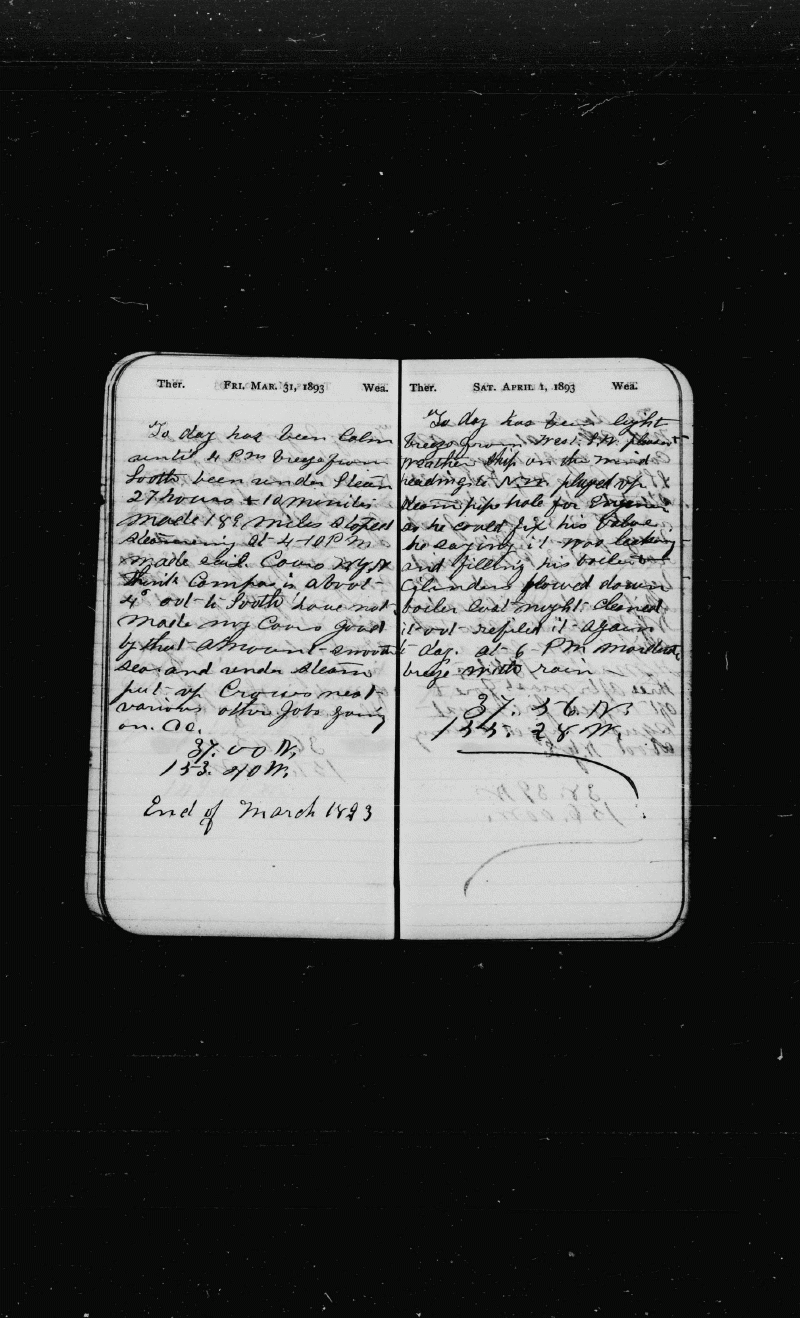 Ther. FRI. MAR. 31, 1893 Wea.
To day has been Calm
until 4 PM breeze from
South been under Steam
27 hours & 10 minits
made 189 miles stoped
steamering at 4-10 PM
made sail. Cours
think Compas is about
4° out to South have not
made my Cours good
by that amount smooth
sea and under steam
put up Crows nest
various other Jobs going
on.
37. 00 N.
153. 40 W.
End of March 1893
Ther. SAT. APRIL 1, 1893 Wea.
To day has been light
breeze from West. S.W. plesent
weather ship on the wind
heading to N.W. pluged up
steam pipe hole for Engineer
so he could fix his valve
he saying it was leaking
and filling his boiler
Cylinders blowed down
boiler last night cleaned
it out refiled it again
to day. at 6 PM modert
breeze with rain
37. 56 N.
155. 28 W.